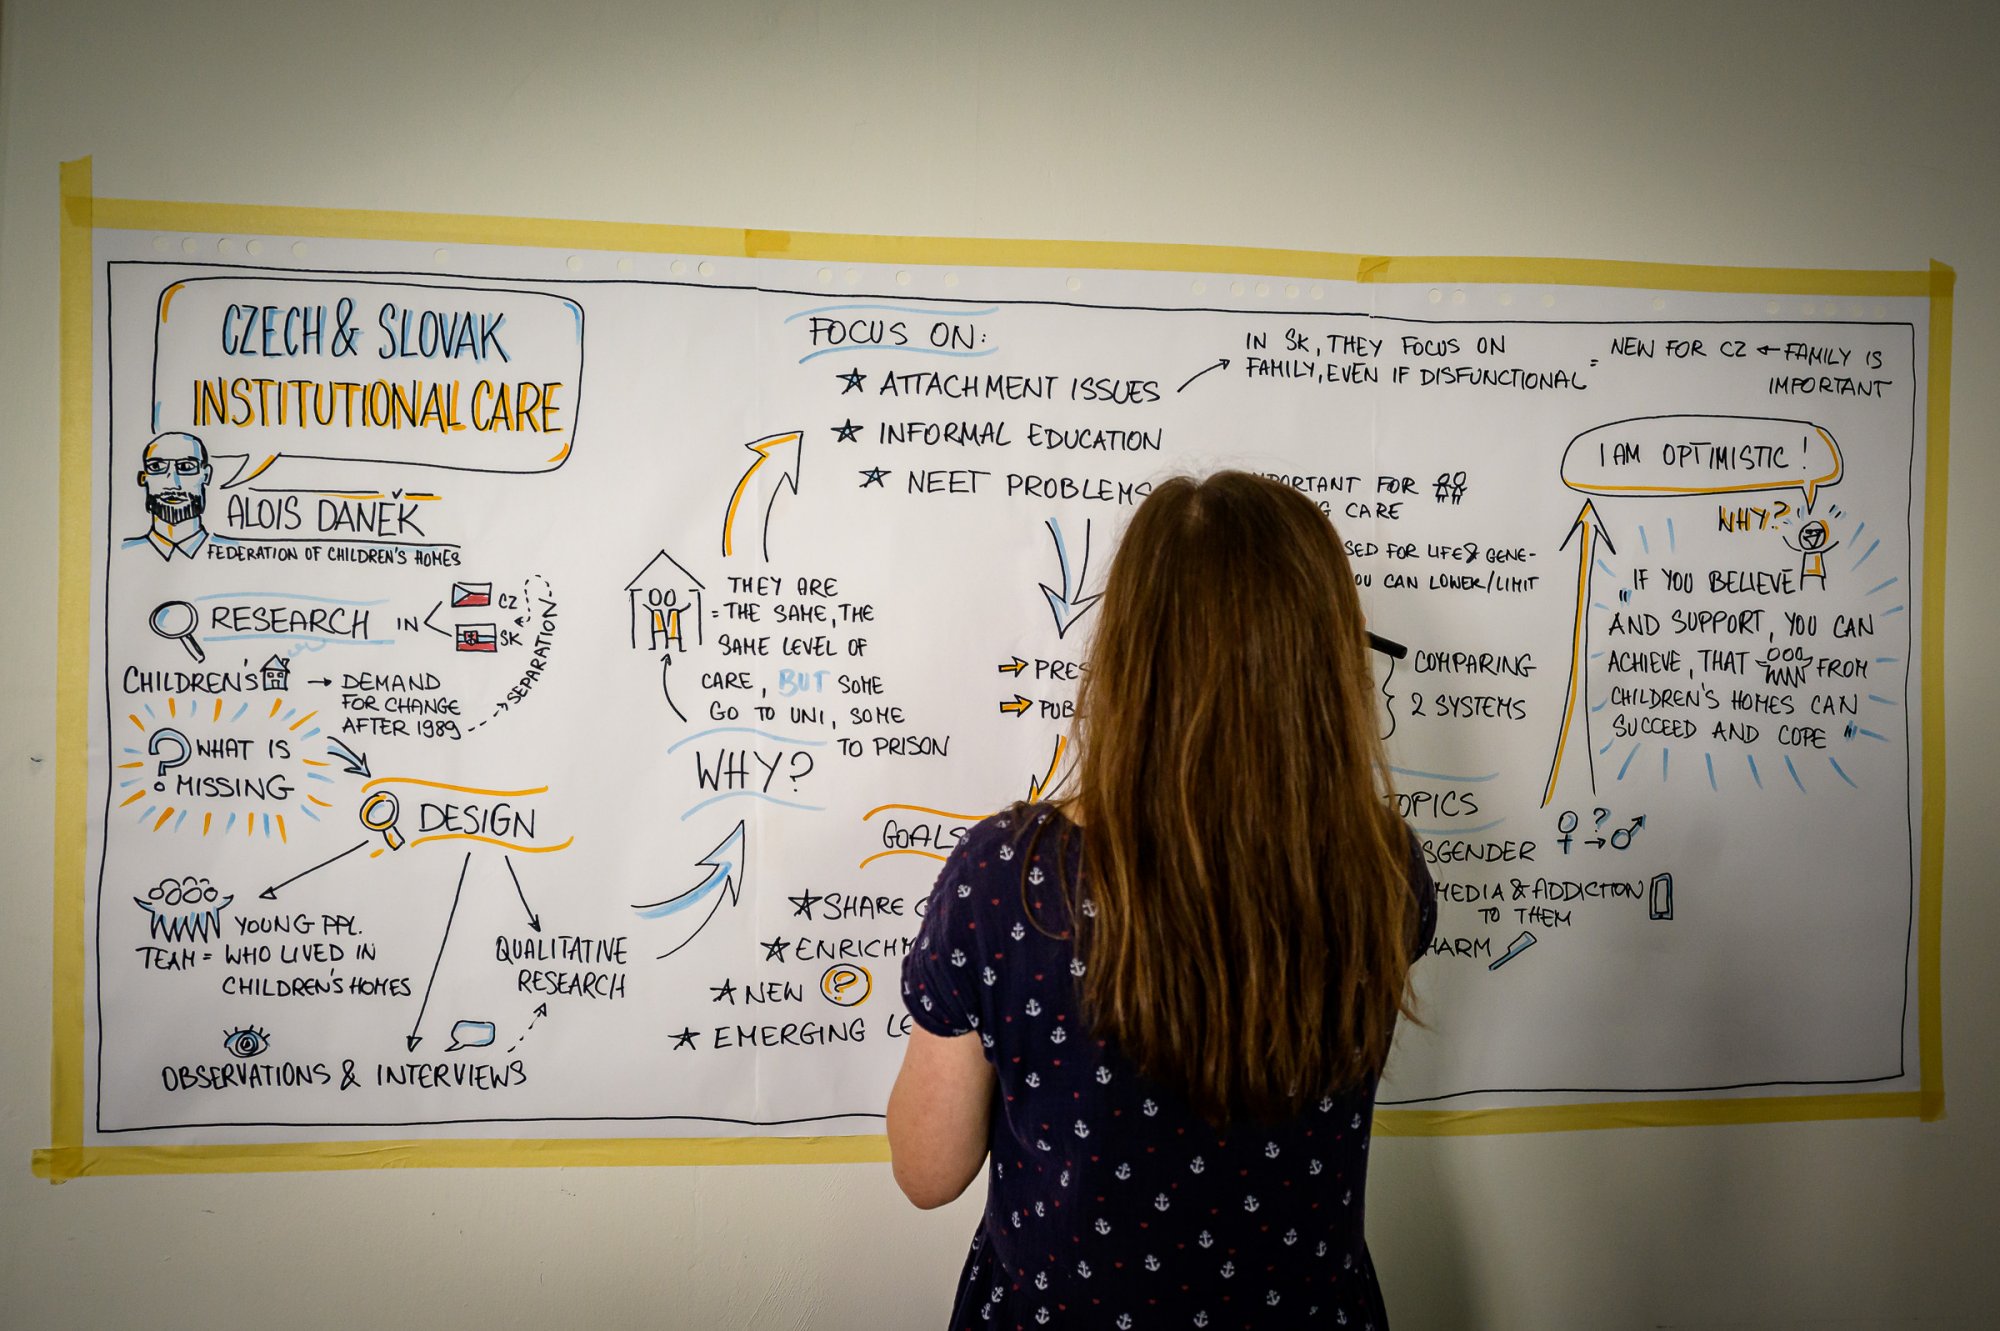 CZECH & SLOVAK
INSTITUTIONAL CARE
ALOIS DANĚK
FEDERATION OF CHILDREN'S HOMES
RESEARCH IN
CZ
SK
SEPARATION
CHILDREN'S
→ DEMAND
FOR CHANGE
AFTER 1989
? WHAT IS
MISSING
DESIGN
YOUNG PPL.
TEAM = WHO LIVED IN
CHILDREN'S HOMES
OBSERVATIONS & INTERVIEWS
QUALITATIVE
RESEARCH
WHY?
THEY ARE
= THE SAME, THE
SAME LEVEL OF
CARE, BUT SOME
GO TO UNI, SOME
TO PRISON
FOCUS ON:
ATTACHMENT ISSUES
INFORMAL EDUCATION
NEET PROBLEMS
IN SK, THEY FOCUS ON
FAMILY, EVEN IF DISFUNCTIONAL
= NEW FOR CZ ← FAMILY IS
IMPORTANT
FOR
CARE
FOR LIFE & GENE-
CAN LOWER/LIMIT
COMPARING
2 SYSTEMS
GOALS
SHARE
NEW ?
EMERGING
& ADDICTION
TO THEM
♀ ? → ♂
I AM OPTIMISTIC!
WHY?
"IF YOU BELIEVE
AND SUPPORT, YOU CAN
ACHIEVE, THAT FROM
CHILDREN'S HOMES CAN
SUCCEED AND COPE"